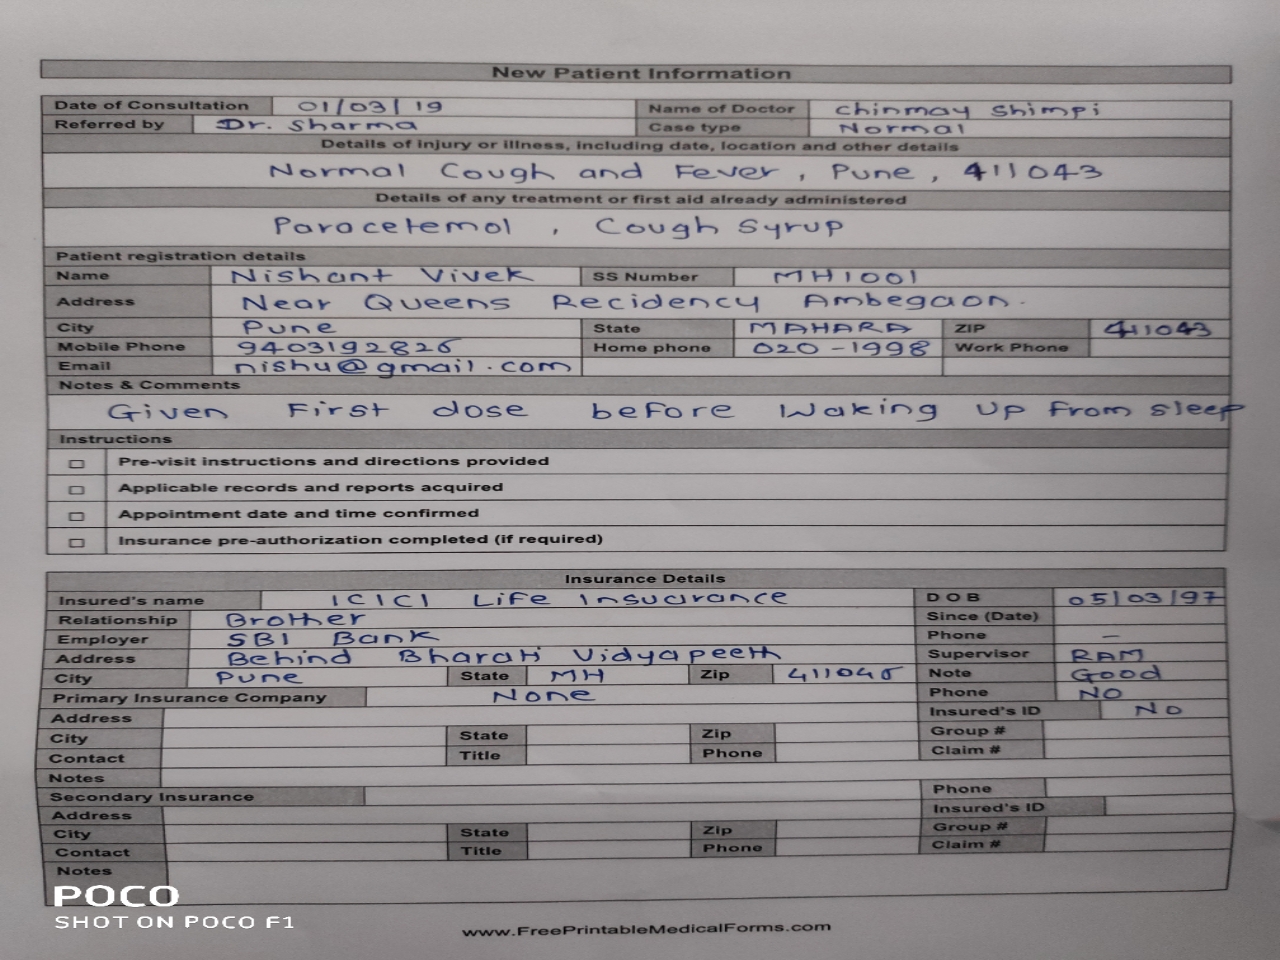 New Patient Information
Date of Consultation 01/03/19 Name of Doctor Chinmay Shimpi
Referred by Dr. Sharma Case type Normal
Details of injury or illness, including date, location and other details
Normal Cough and Fever, Pune, 411043
Details of any treatment or first aid already administered
Paracetemol, Cough Syrup
Patient registration details
Name Nishant Vivek SS Number MH1001
Address Near Queens Recidency Ambegaon.
City Pune State MAHARA ZIP 411043
Mobile Phone 9403192826 Home phone 020-1998 Work Phone
Email nishu@gmail.com
Notes & Comments
Given First dose before Waking Up From sleep
Instructions
Pre-visit instructions and directions provided
Applicable records and reports acquired
Appointment date and time confirmed
Insurance pre-authorization completed (if required)
Insurance Details
Insured's name ICICI Life Insucurance DOB 05/03/97
Relationship Brother Since (Date)
Employer SBI Bank Phone —
Address Behind Bharati Vidyapeeth Supervisor RAM
City Pune State MH Zip 411046 Note Good
Primary Insurance Company None Phone NO
Address Insured's ID No
City State Zip Group #
Contact Title Phone Claim #
Notes
Secondary Insurance Phone
Address Insured's ID
City State Zip Group #
Contact Title Phone Claim #
Notes
POCO
SHOT ON POCO F1
www.FreePrintableMedicalForms.com